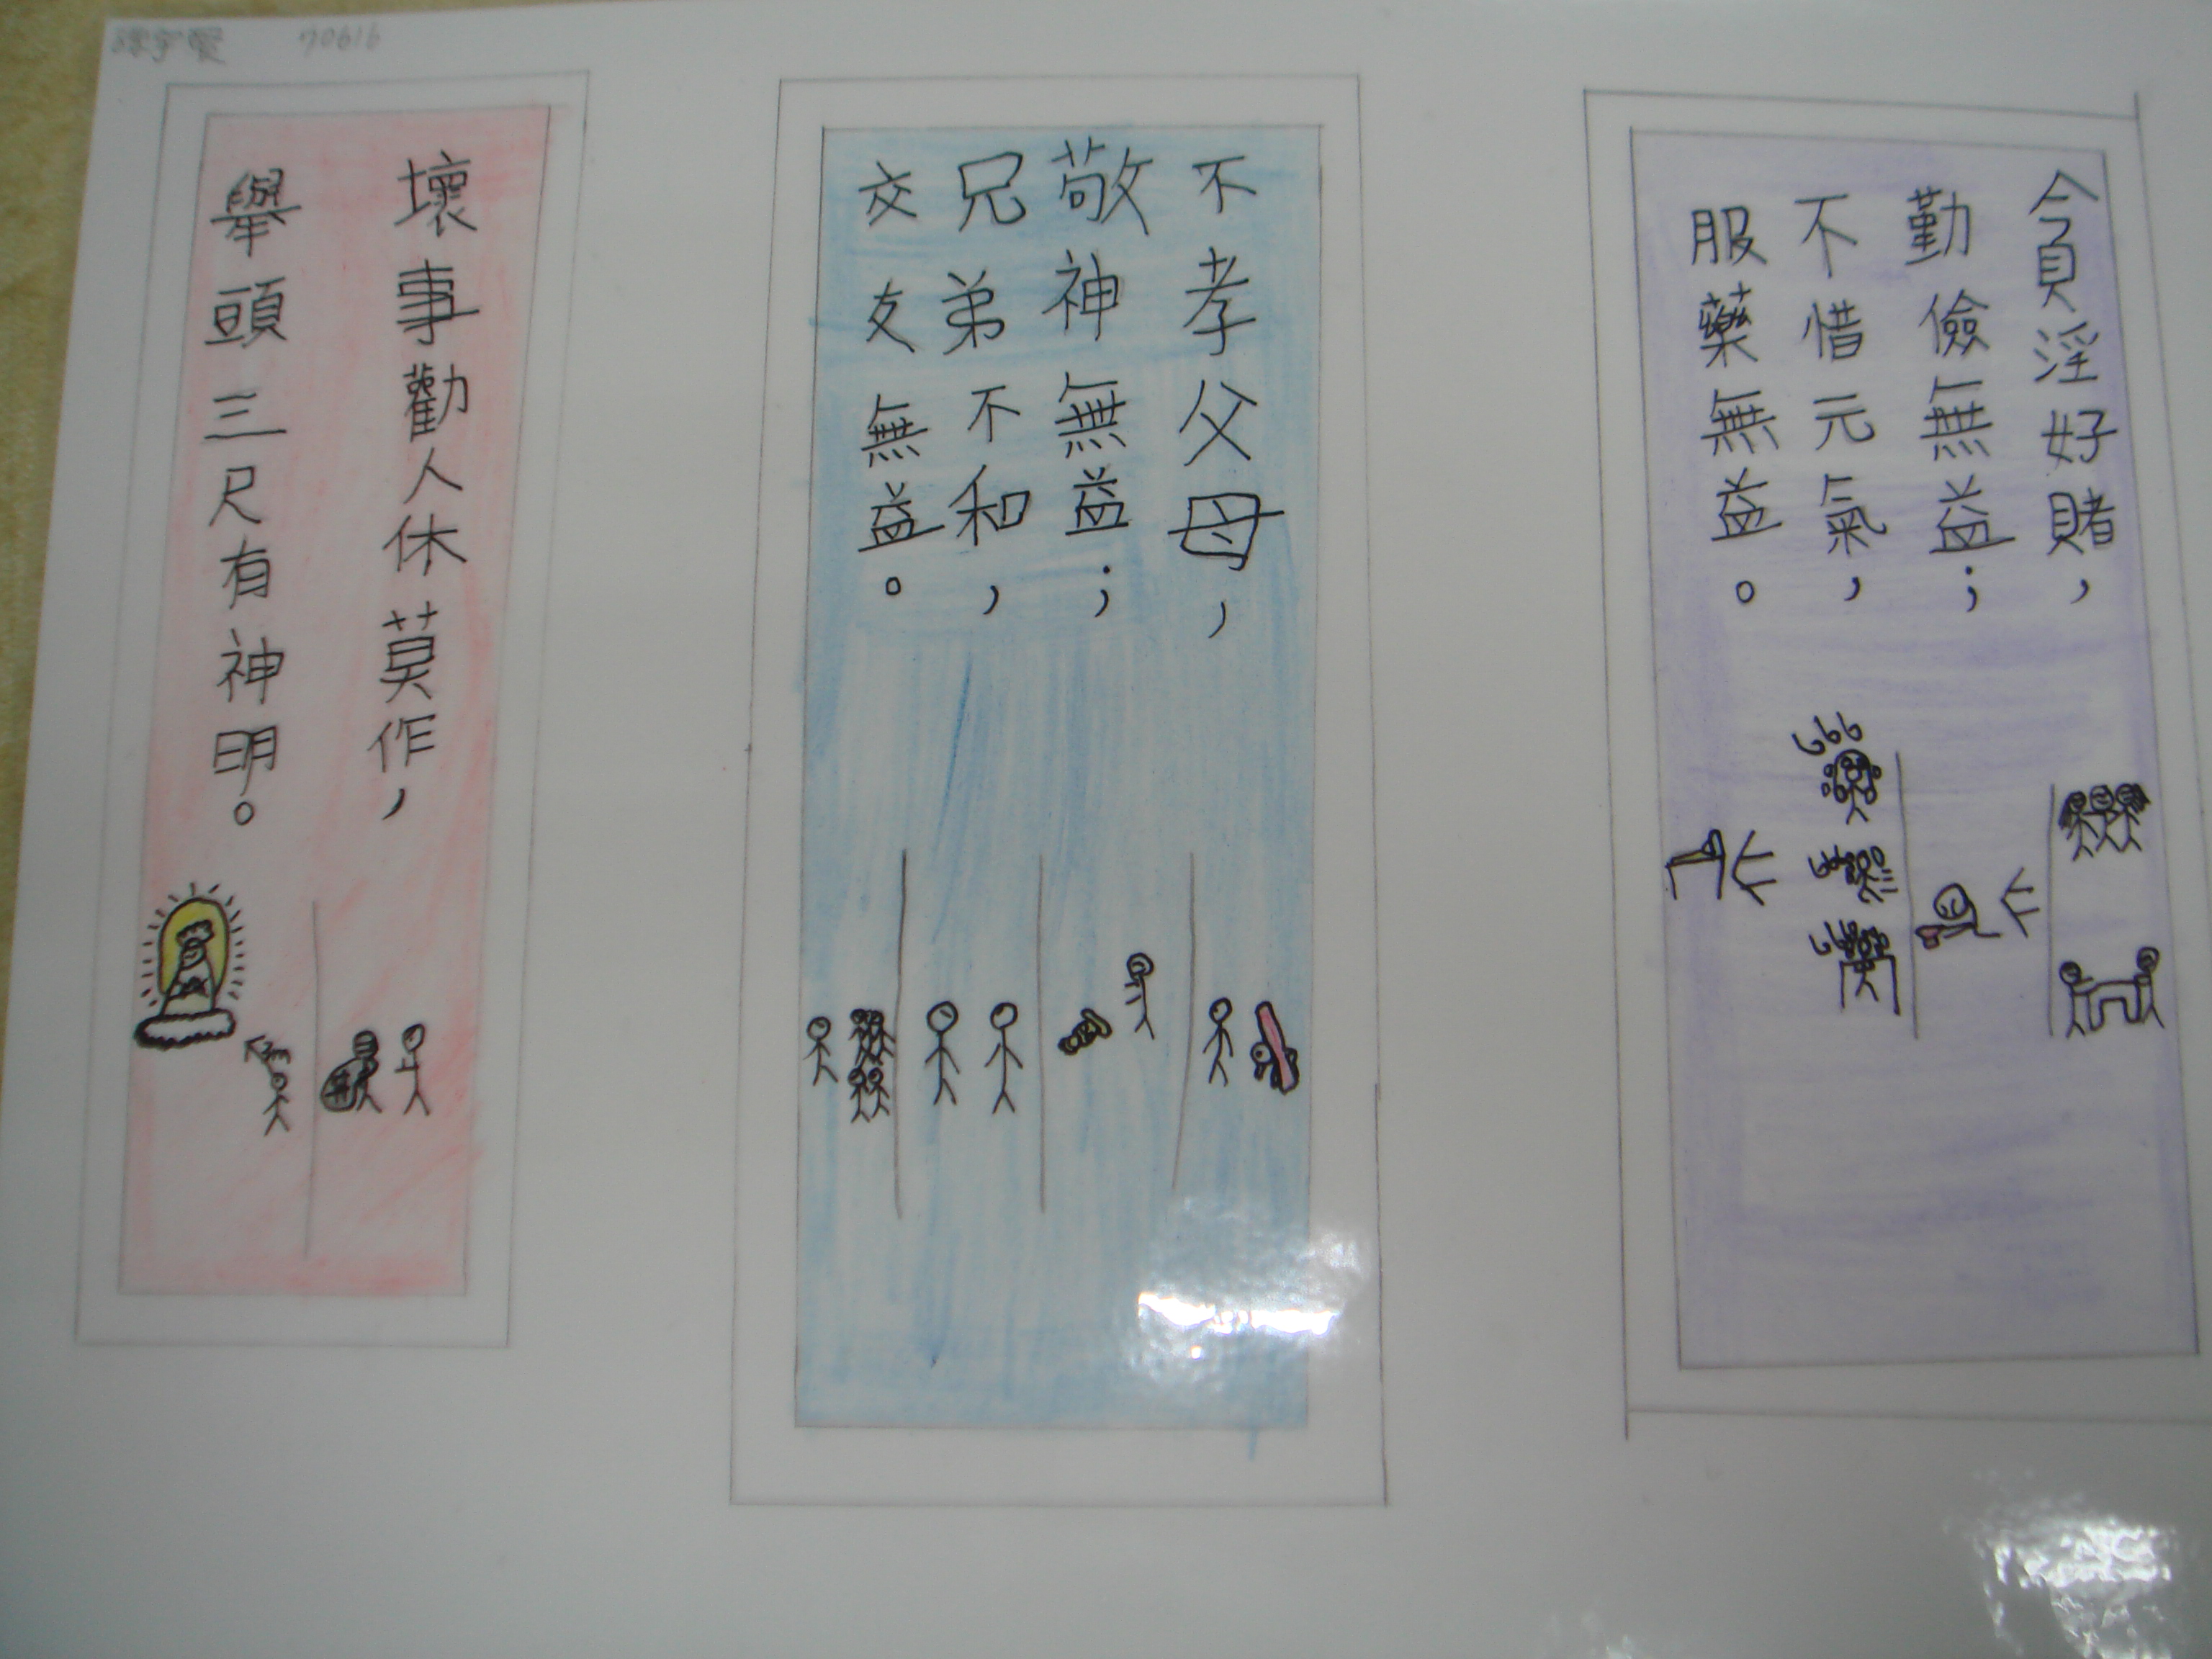 70616
貪淫好賭，
勤儉無益；
不惜元氣，
服藥無益。
不孝父母，
敬神無益；
兄弟不和，
交友無益。
壞事勸人休莫作，
舉頭三尺有神明。